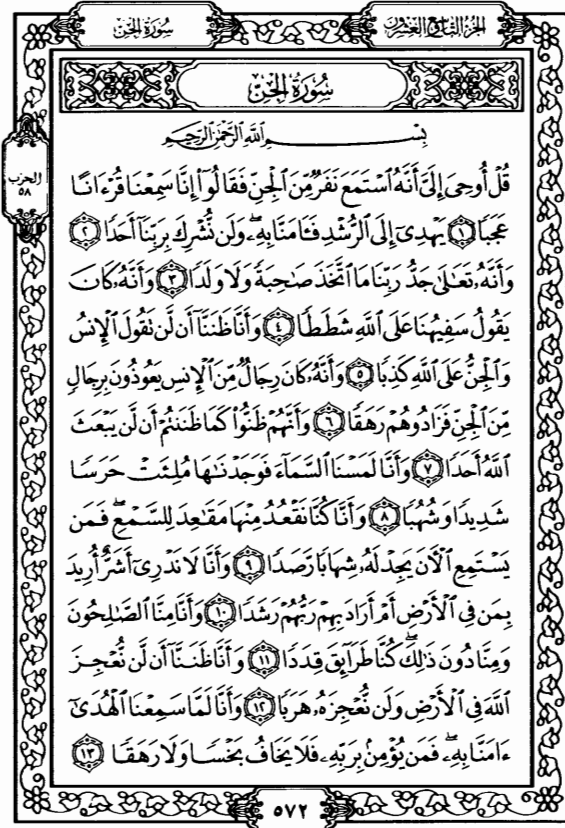 الجزء التاسع والعشرون
سورة الجن
سورة الجن
بسم الله الرحمن الرحيم
الحزب
٥٨
قُلْ أُوحِىَ إِلَىَّ أَنَّهُ ٱسْتَمَعَ نَفَرٌ مِّنَ ٱلْجِنِّ فَقَالُوٓا۟ إِنَّا سَمِعْنَا قُرْءَانًا
عَجَبًا ١ يَهْدِىٓ إِلَى ٱلرُّشْدِ فَـَٔامَنَّا بِهِۦ ۖ وَلَن نُّشْرِكَ بِرَبِّنَآ أَحَدًا ٢
وَأَنَّهُۥ تَعَـٰلَىٰ جَدُّ رَبِّنَا مَا ٱتَّخَذَ صَـٰحِبَةً وَلَا وَلَدًا ٣ وَأَنَّهُۥ كَانَ
يَقُولُ سَفِيهُنَا عَلَى ٱللَّهِ شَطَطًا ٤ وَأَنَّا ظَنَنَّآ أَن لَّن تَقُولَ ٱلْإِنسُ
وَٱلْجِنُّ عَلَى ٱللَّهِ كَذِبًا ٥ وَأَنَّهُۥ كَانَ رِجَالٌ مِّنَ ٱلْإِنسِ يَعُوذُونَ بِرِجَالٍ
مِّنَ ٱلْجِنِّ فَزَادُوهُمْ رَهَقًا ٦ وَأَنَّهُمْ ظَنُّوا۟ كَمَا ظَنَنتُمْ أَن لَّن يَبْعَثَ
ٱللَّهُ أَحَدًا ٧ وَأَنَّا لَمَسْنَا ٱلسَّمَآءَ فَوَجَدْنَـٰهَا مُلِئَتْ حَرَسًا
شَدِيدًا وَشُهُبًا ٨ وَأَنَّا كُنَّا نَقْعُدُ مِنْهَا مَقَـٰعِدَ لِلسَّمْعِ ۖ فَمَن
يَسْتَمِعِ ٱلْـَٔانَ يَجِدْ لَهُۥ شِهَابًا رَّصَدًا ٩ وَأَنَّا لَا نَدْرِىٓ أَشَرٌّ أُرِيدَ
بِمَن فِى ٱلْأَرْضِ أَمْ أَرَادَ بِهِمْ رَبُّهُمْ رَشَدًا ١٠ وَأَنَّا مِنَّا ٱلصَّـٰلِحُونَ
وَمِنَّا دُونَ ذَٰلِكَ ۖ كُنَّا طَرَآئِقَ قِدَدًا ١١ وَأَنَّا ظَنَنَّآ أَن لَّن نُّعْجِزَ
ٱللَّهَ فِى ٱلْأَرْضِ وَلَن نُّعْجِزَهُۥ هَرَبًا ١٢ وَأَنَّا لَمَّا سَمِعْنَا ٱلْهُدَىٰٓ
ءَامَنَّا بِهِۦ ۖ فَمَن يُؤْمِنۢ بِرَبِّهِۦ فَلَا يَخَافُ بَخْسًا وَلَا رَهَقًا ١٣
٥٧٢